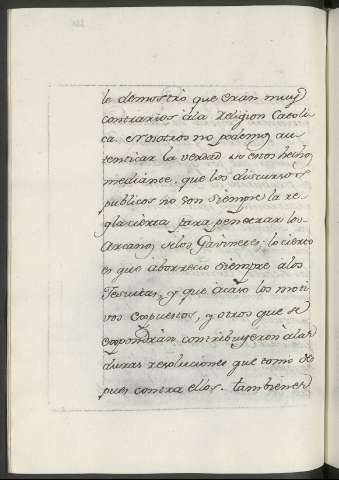 le demostrò que eran muy
contrarios àla religion Catoli-
ca. Nosotros no podemos au-
tenticar la verdad de estos hechos
mediante, que los discursos
publicos no son siempre la re-
gla cierta para penetrar los
Arcanos delos Gavinetes; lo cierto
es que aborrecio siempre alos
Jesuitas, y que acaso los moti-
vos expuestos, y otros que se
expondran contribuyeron àlas
duras resoluciones que tomo des-
pues contra ellos. tambien es